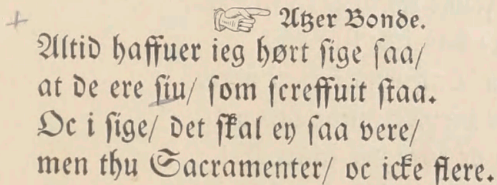 ☞ Atzer Bonde.
Altid haffuer ieg hørt sige saa/
at de ere siu/ som screffuit staa.
Oc i sige/ det skal ey saa vere/
men thu Sacramenter/ oc icke flere.